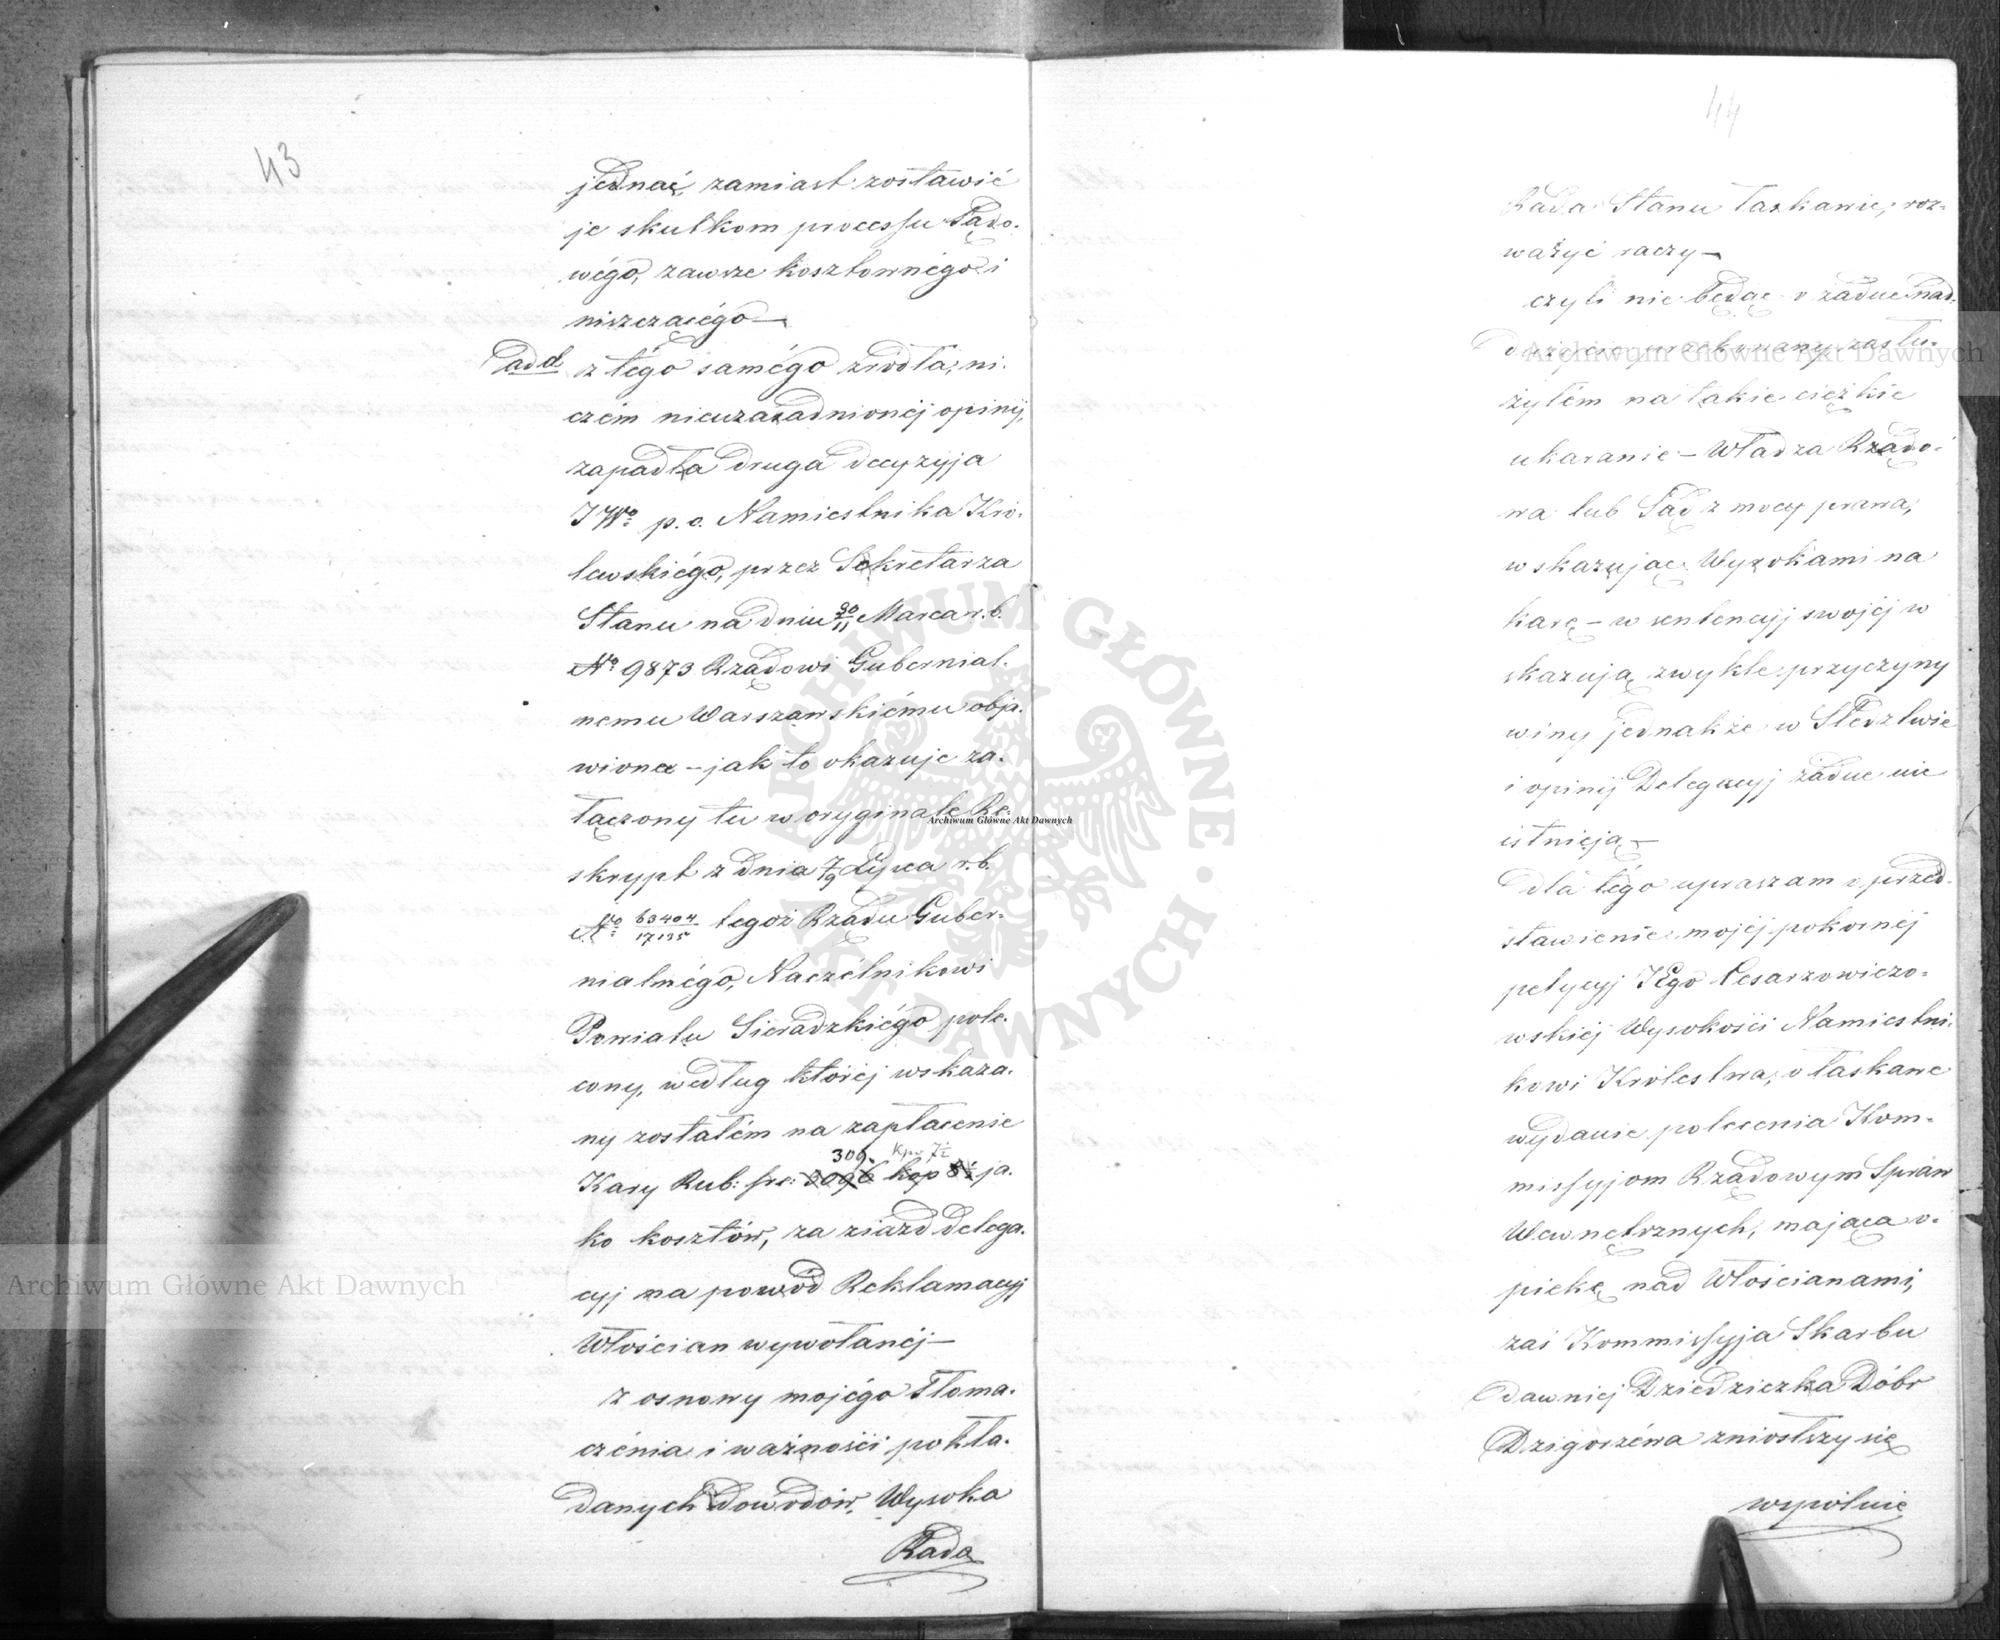 43
jednać zamiast zostawić
je skutkom processu Sądo-
wégo, zawsze kosztownégo i
niszczącégo —
ad d. z tégo samégo zrodła, ni-
czém nieuzasadnionéj opinij,
zapadła druga decyzyja
JWo p. o. Namiestnika Kró-
lewskiégo, przez Sekretarza
Stanu na dniu 30/11 Marca r. b.
No 9873 Rządowi Gubernial-
nemu Warszawskiému obja-
wiona — jak to okazuje za-
łączony tu w oryginale Re-
skrypt z dnia 7/9 Lipca r. b.
No 63404/17135 tegoż Rządu Guber-
nialnégo, Naczélnikowi
Powiatu Sieradzkiégo pole-
cony, według któréj wskaza-
ny zostałém na zapłacenie
306. Kop 7½
Kary Rub: sre: 3096 kop 8½ ja-
ko kosztów, za ziazd delega-
cyj na powód Reklamacyj
Włościan wywołanéj —
Z osnowy mojégo tłoma-
czénia i ważności pokła-
danych dowodów, Wysoka
Rada
44
Rada Stanu łaskawie, roz-
ważyć raczy —
czyli nie będąc o żadne nad-
użycie przekonany zasłu-
żyłém na takie ciężkie
ukaranie — Władza Rządo-
wa lub Sąd z mocy prawa,
wskazując Wyrokami na
karę — w sentencyj swojéj w
skazują zwykle przyczyny
winy jednakże w Sledztwie
i opinij Delegacyj żadne nie
istnieją —
dla tégo upraszam o przed-
stawienie mojéj pokornéj
petycyj JEgo Cesarzowiczo-
wskiéj Wysokości Namiestni-
kowi Królestwa, o łaskawe
wydanie polecenia Kom-
missyjom Rządowym Spraw
Wewnętrznych, mająca o-
piekę nad Włościanami,
zaś Kommissyja Skarbu
dawniej Dziedziczka Dóbr
Dzigorzéwa zniosłszy się
wspólnie
Archiwum Główne Akt Dawnych
Archiwum Główne Akt Dawnych
Archiwum Główne Akt Dawnych
ARCHIWUM GŁÓWNE · AKT DAWNYCH ·